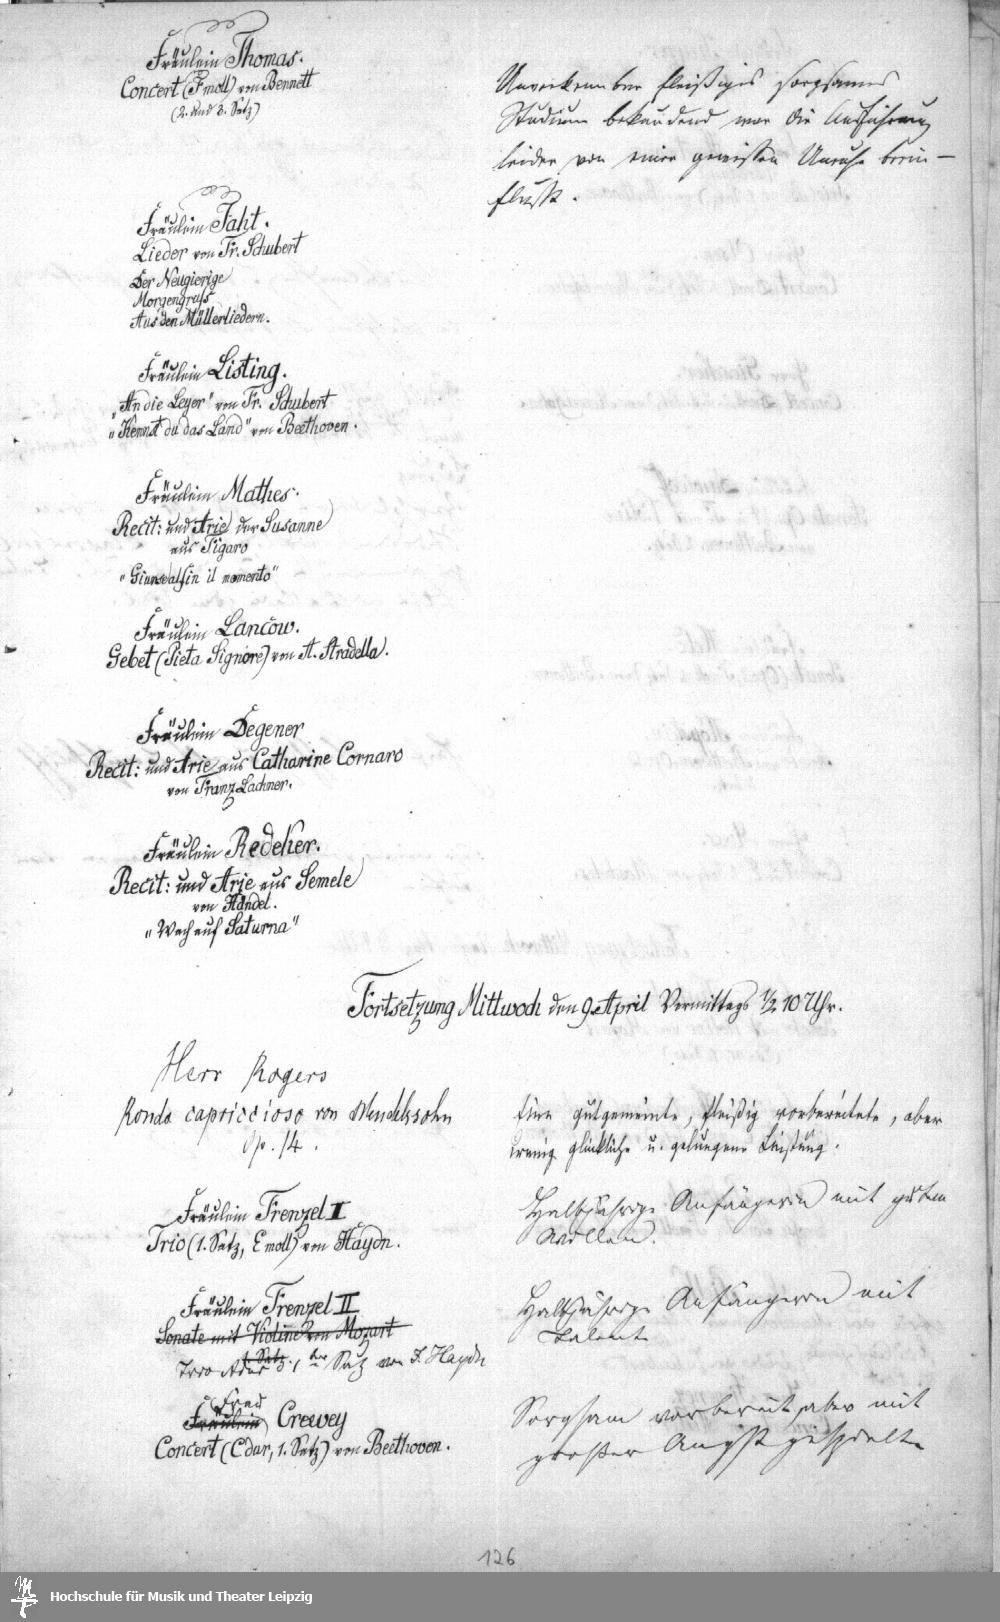 Fräulein Thomas.
Concert (Fmoll) von Bennett
(2. und 3. Satz)
Unverkennbar fleißiges sorgsames
Studium bekundend war die Ausführung
leider von einer gewissen Unruhe beein-
flußt.
Fräulein Faht.
Lieder von Fr. Schubert
Der Neugierige
Morgengruß
Aus den Müllerliedern.
Fräulein Listing.
„An die Leyer" von Fr. Schubert
„Kennst du das Land" von Beethoven.
Fräulein Mathes.
Recit: und Arie der Susanne
aus Figaro
„Giunse alfin il momento"
Fräulein Lancow.
Gebet (Pieta Signore) von A. Stradella.
Fräulein Degener
Recit: und Arie aus Catharine Cornaro
von Franz Lachner.
Fräulein Redeker.
Recit: und Arie aus Semele
von Händel.
„Wach auf Saturna"
Fortsetzung Mittwoch den 9. April Vormittags ½ 10 Uhr.
Herr Rogers
Rondo capriccioso von Mendelssohn
Op. 14.
Eine gutgemeinte, fleißig vorbereitete, aber
wenig glückliche u. gelungene Leistung.
Fräulein Frenzel II
Trio (1. Satz, Emoll) von Haydn.
Halbjährige Anfängerin mit gutem
Willen.
Fräulein Frenzel II
Sonate mit Violine von Mozart
1. Satz
Trio Adur 1ter Satz von J. Haydn
Halbjährige Anfängerin mit
Talent
Frau
Fräulein Crewey
Concert (Cdur, 1. Satz) von Beethoven.
Sorgsam vorbereitet, aber mit
großer Angst gespielt
126
Hochschule für Musik und Theater Leipzig